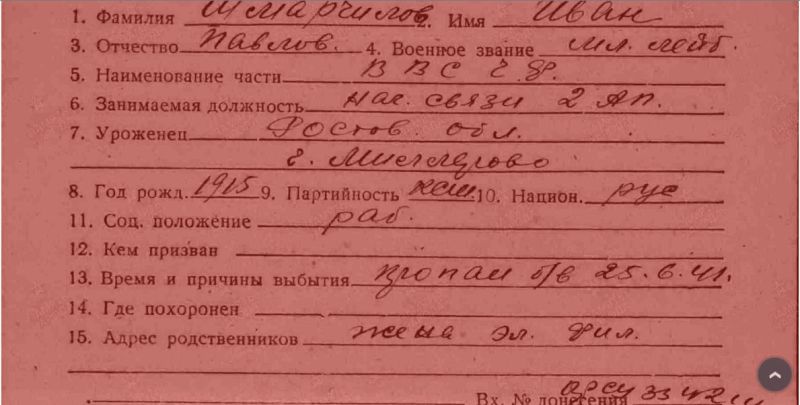 1. Фамилия Шмарчилов 2. Имя Иван
3. Отчество Павлов. 4. Военное звание мл. лейт.
5. Наименование части ВВС Ч.Ф.
6. Занимаемая должность нач. связи 2 АП.
7. Уроженец Ростов. обл.
г. Миллерово
8. Год рожд. 1915 9. Партийность 10. Национ. рус
11. Соц. положение раб.
12. Кем призван
13. Время и причины выбытия пропал б/в 25.6.41.
14. Где похоронен
15. Адрес родственников жена
Вх. № донесения